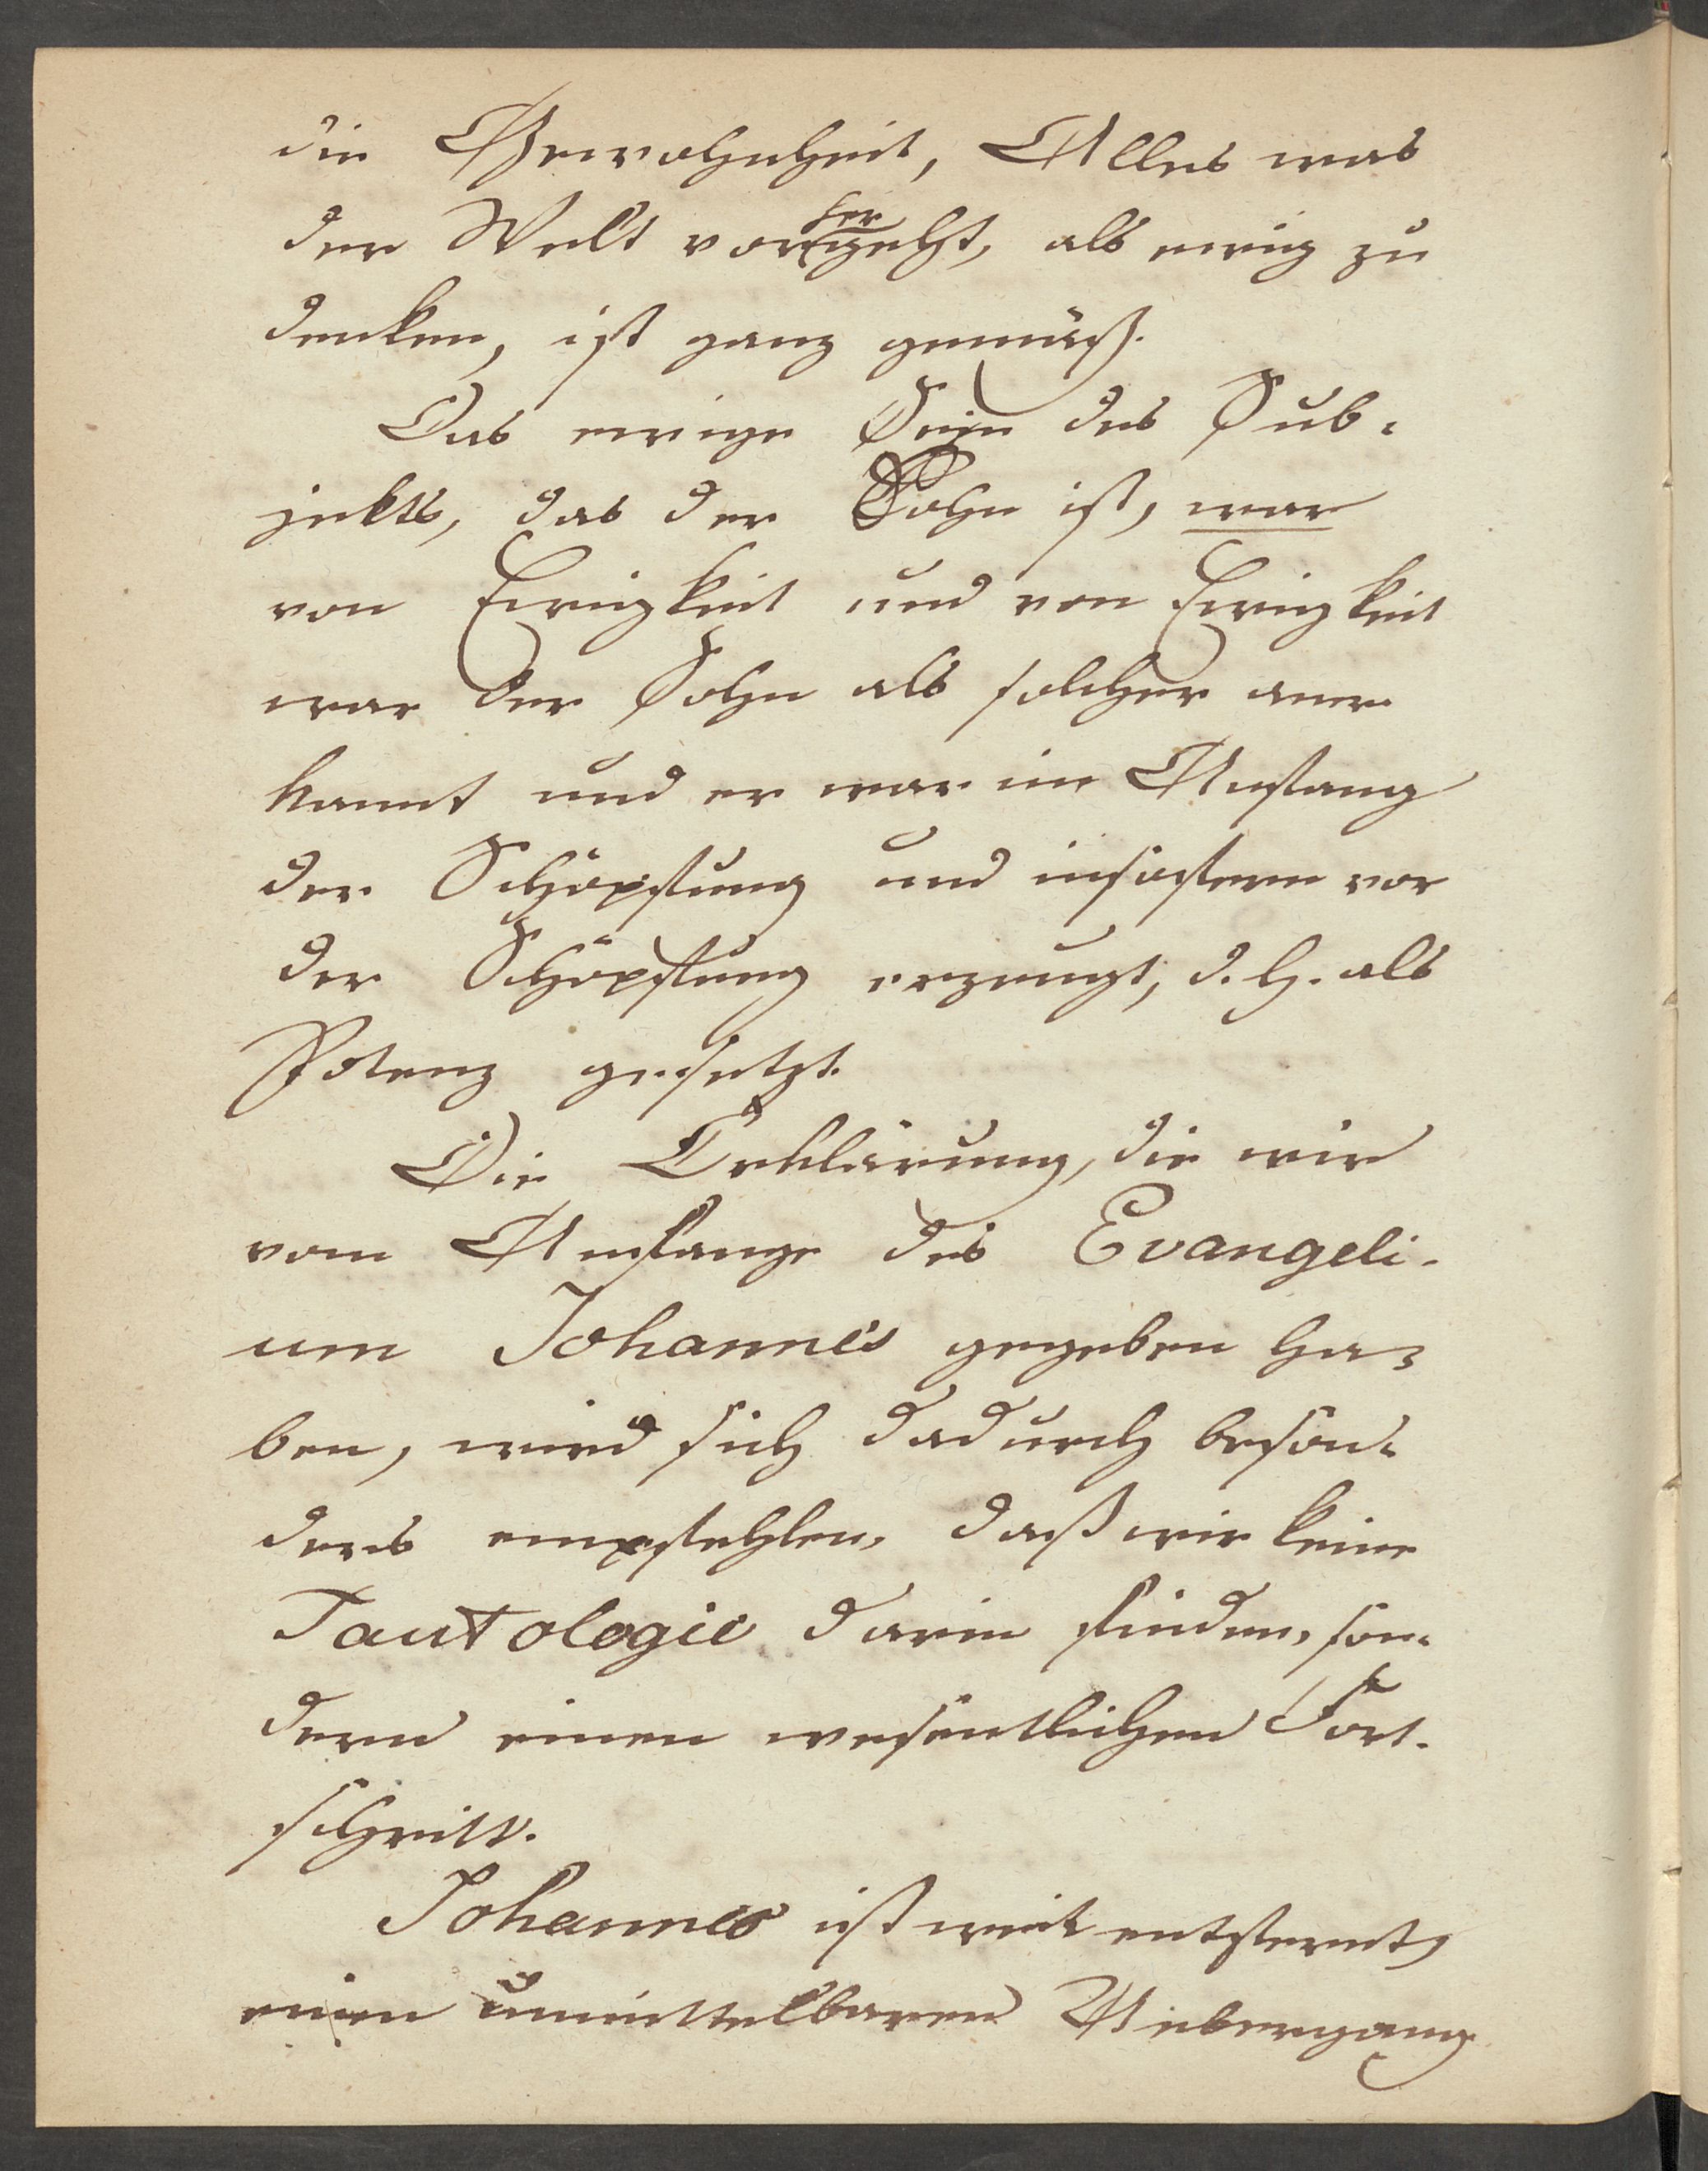 die Gewohnheit, Alles was
der Welt vorhergeht, als ewig zu
denken, ist ganz gemäß.
Das ewige Seyn des Sub-
jekts, das der Sohn ist, war
von Ewigkeit und von Ewigkeit
war der Sohn als solcher aner-
kannt und er war im Anfang
der Schöpfung und insofern vor
der Schöpfung erzeugt, d. h. als
Potenz gesetzt.
Die Erklärung, die wir
vom Anfange des Evangeli-
um Johannes gegeben ha-
ben, wird sich dadurch beson-
ders empfehlen, daß wir keine
Tautologie darin finden, son-
dern einen wesentlichen Fort-
schritt.
Johannes ist weit entfernt,
einen unmittelbaren Uebergang